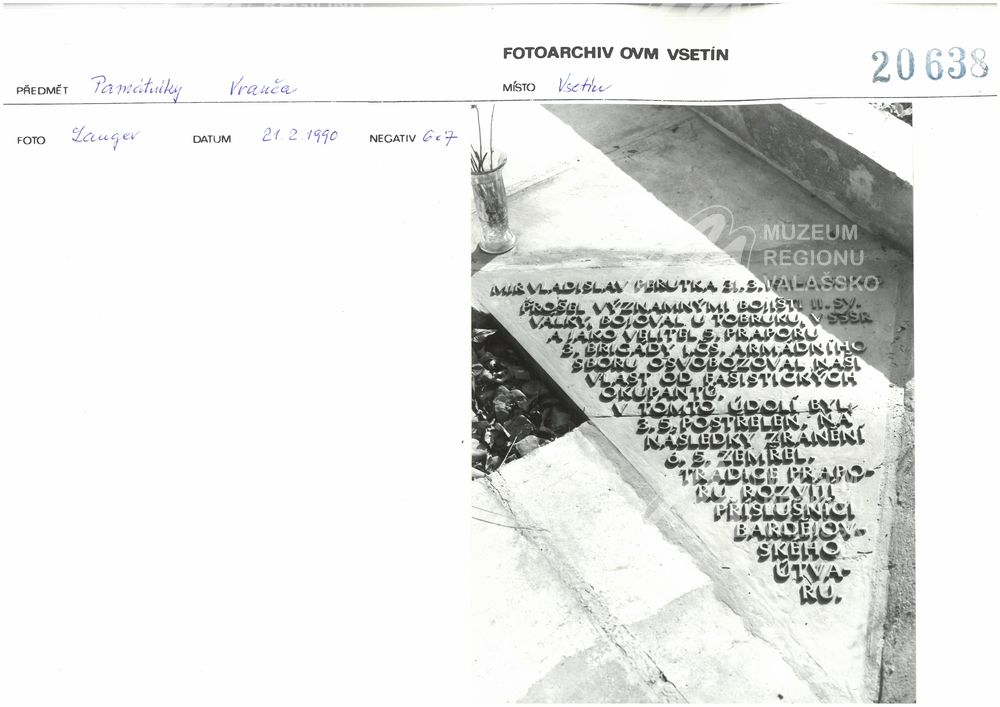 FOTOARCHIV OVM VSETÍN
20638
PŘEDMĚT Památníky Vranča
MÍSTO Vsetín
FOTO Langer DATUM 21.2.1990 NEGATIV 6x7
MUZEUM
REGIONU
VALAŠSKO
MJR VLADISLAV PERUTKA 31. 3.
PROŠEL VÝZNAMNÝMI BOJIŠTI II. SV.
VÁLKY, BOJOVAL U TOBRUKU, V SSSR
A JAKO VELITEL 5. PRAPORU
3. BRIGÁDY 1. ČS. ARMÁDNÍHO
SBORU OSVOBOZOVAL NAŠI
VLAST OD FAŠISTICKÝCH
OKUPANTŮ.
V TOMTO ÚDOLÍ BYL
3. 5. POSTŘELEN, NA
NÁSLEDKY ZRANĚNÍ
6. 5. ZEMŘEL.
TRADICE PRAPO-
RU ROZVÍJÍ
PŘÍSLUŠNÍCI
BARDĚJOV-
SKÉHO
ÚTVA-
RU.